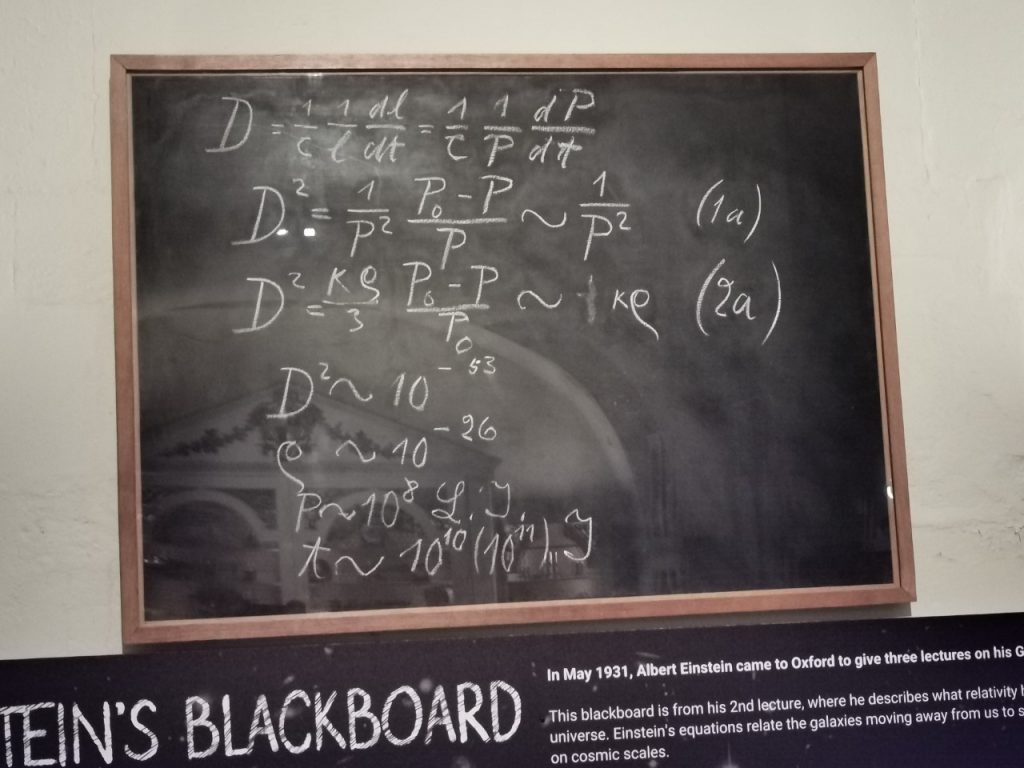 D = 1/c 1/l dl/dt = 1/c 1/P dP/dt
D² = 1/P² (P₀ − P)/P ~ 1/P² (1a)
D² = κρ/3 (P₀ − P)/P₀ ~ κρ (2a)
D² ~ 10⁻⁵³
ρ ~ 10⁻²⁶
P ~ 10⁸ L. J.
t ~ 10¹⁰ (10¹¹) J
TEIN'S BLACKBOARD
In May 1931, Albert Einstein came to Oxford to give three lectures on his G
This blackboard is from his 2nd lecture, where he describes what relativity
universe. Einstein's equations relate the galaxies moving away from us to s
on cosmic scales.